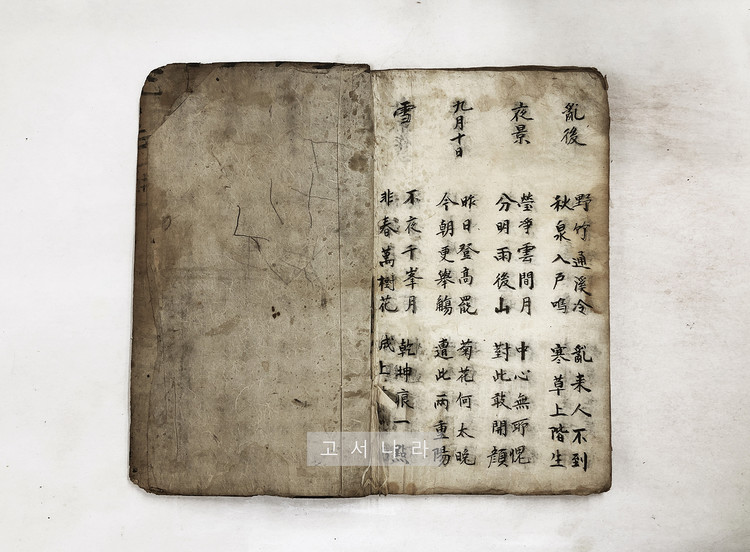 亂後
野竹通溪冷
秋泉入戶鳴
亂来人不到
寒草上階生
夜景
瑩淨雲間月
分明雨後山
中心無所愧
對此敢開顔
九月十日
昨日登高罷
今朝更舉觴
菊花何太晚
遭此兩重陽
雪
不夜千峯月
非春萬樹花
乾坤痕一點
上
고서나라